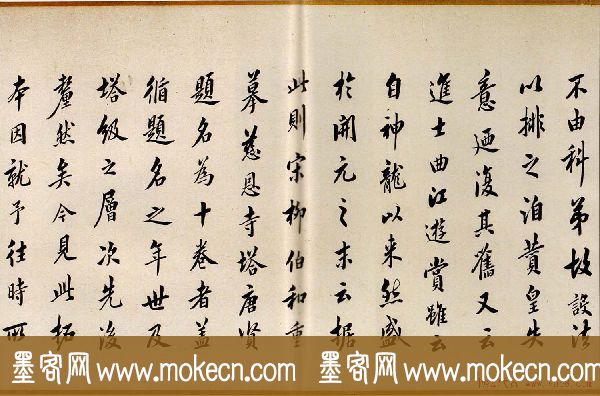 不由科第故設法
以排之洎贊皇失
意廼復其舊又云
進士曲江遊賞雖云
自神龍以来然盛
於開元之末云据
此則宋柳伯和重
摹慈恩寺塔唐賢
題名為十卷者盖
循題名之年世及
塔級之層次先後
釐然矣今見此拓
本因就予往時所
墨客网 www.mokecn.com 墨客网 www.mokecn.com